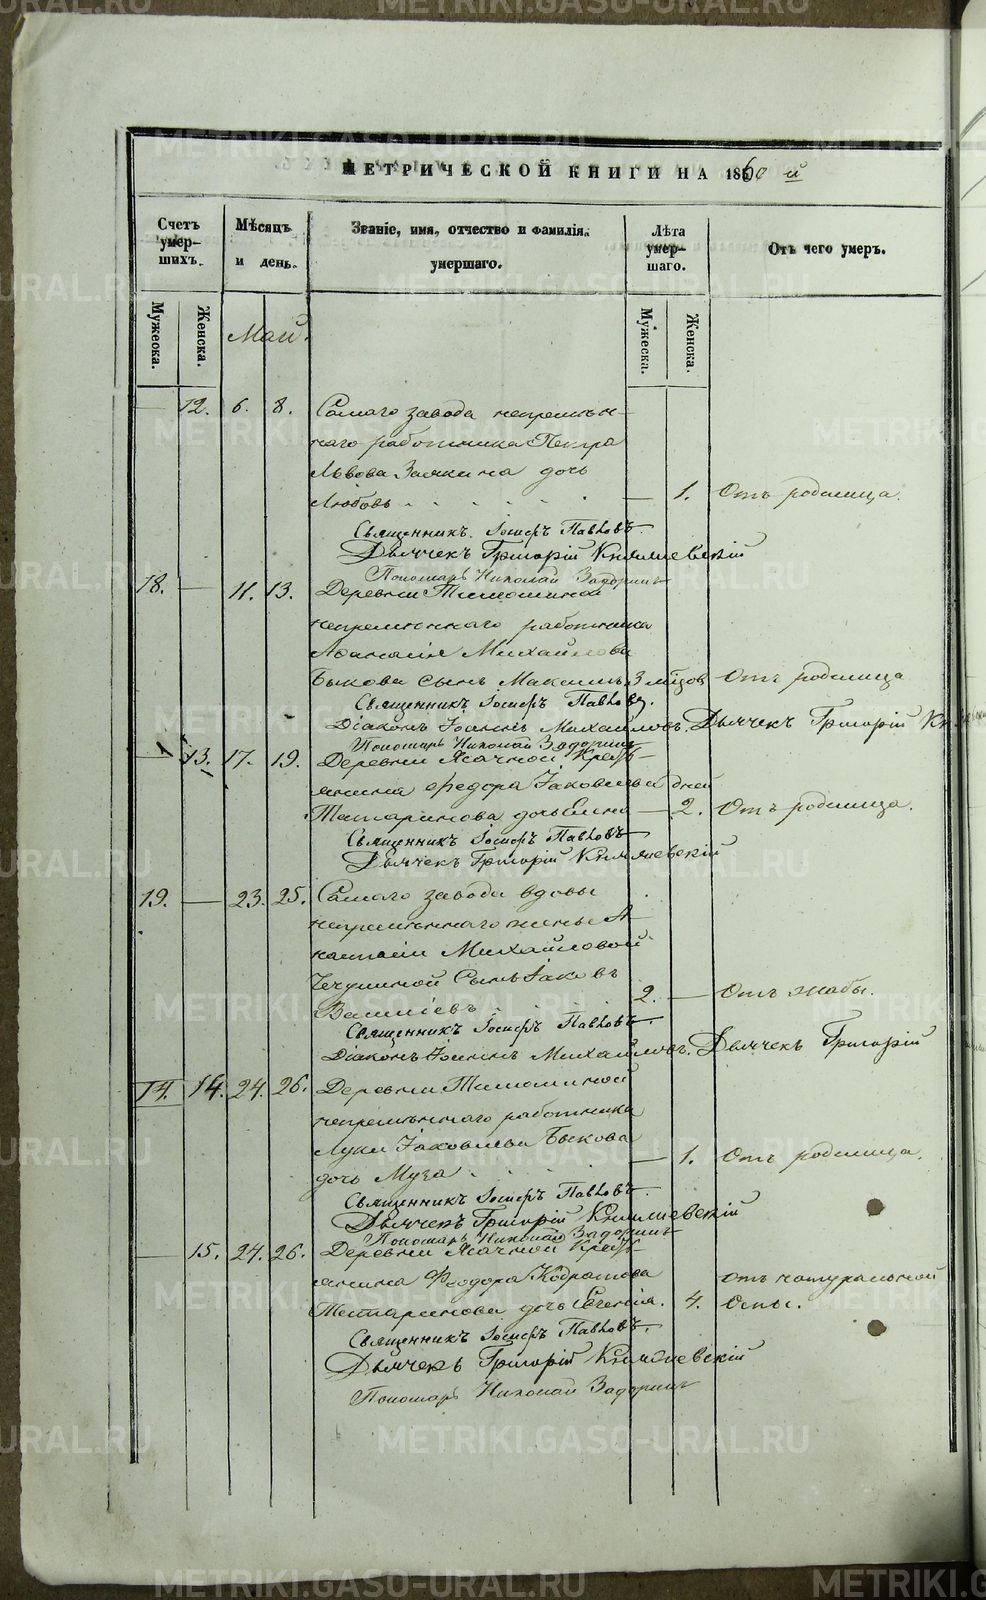 МЕТРИЧЕСКОЙ КНИГИ НА 1860 й
Счетъ умер- шихъ.
Мѣсяцъ и день.
Званіе, имя, отчество и фамилія умершаго.
Лѣта умер- шаго.
Отъ чего умеръ.
Мужеска.
Женска.
Май.
Мужеска.
Женска.
— 12. 6. 8. Самаго завода непремѣн-
наго работника Петра
Львова Заякина дочь
Любовь — 1. Отъ родимца.
Священникъ Іосифъ Павловъ
Дьячекъ Григорій
Пономарь Николай Задоринъ
18. — 11. 13. Деревни Тимошиной
непремѣннаго работника
Аѳанасія Михайлова
Быкова сынъ Максимъ 3 мѣсцов Отъ родимца
Священникъ Іосифъ Павловъ.
Діаконъ Іоаннъ Михайловъ. Дьячекъ Григорій
Пономарь Николай Задоринъ
— 13. 17. 19. Деревни Ясачной Кресть-
янина Ѳедора Іаковлева дней
Татаринова дочь Елена — 2. Отъ родимца.
Священникъ Іосифъ Павловъ
Дьячекъ Григорій
19. — 23. 25. Самаго завода вдовы
непремѣннаго жены А-
Михайловой
сынъ Іаковъ
Василіевъ 2. — Отъ жабы.
Священникъ Іосифъ Павловъ.
Діаконъ Іоаннъ Михайловъ. Дьячекъ Григорій
14. 14. 24. 26. Деревни Тимошиной
непремѣннаго работника
Луки Іаковлева Быкова
дочь Муза — 1. Отъ родимца.
Священникъ Іосифъ Павловъ.
Дьячекъ Григорій
Пономарь Николай Задоринъ
— 15. 24. 26. Деревни Ясачной Кресть-
янина Ѳеодора Кодратова
Татаринова дочь Евгенія. 4. отъ натуральной
Оспы.
Священникъ Іосифъ Павловъ.
Дьячекъ Григорій
Пономарь Николай Задоринъ
METRIKI.GASO-URAL.RU